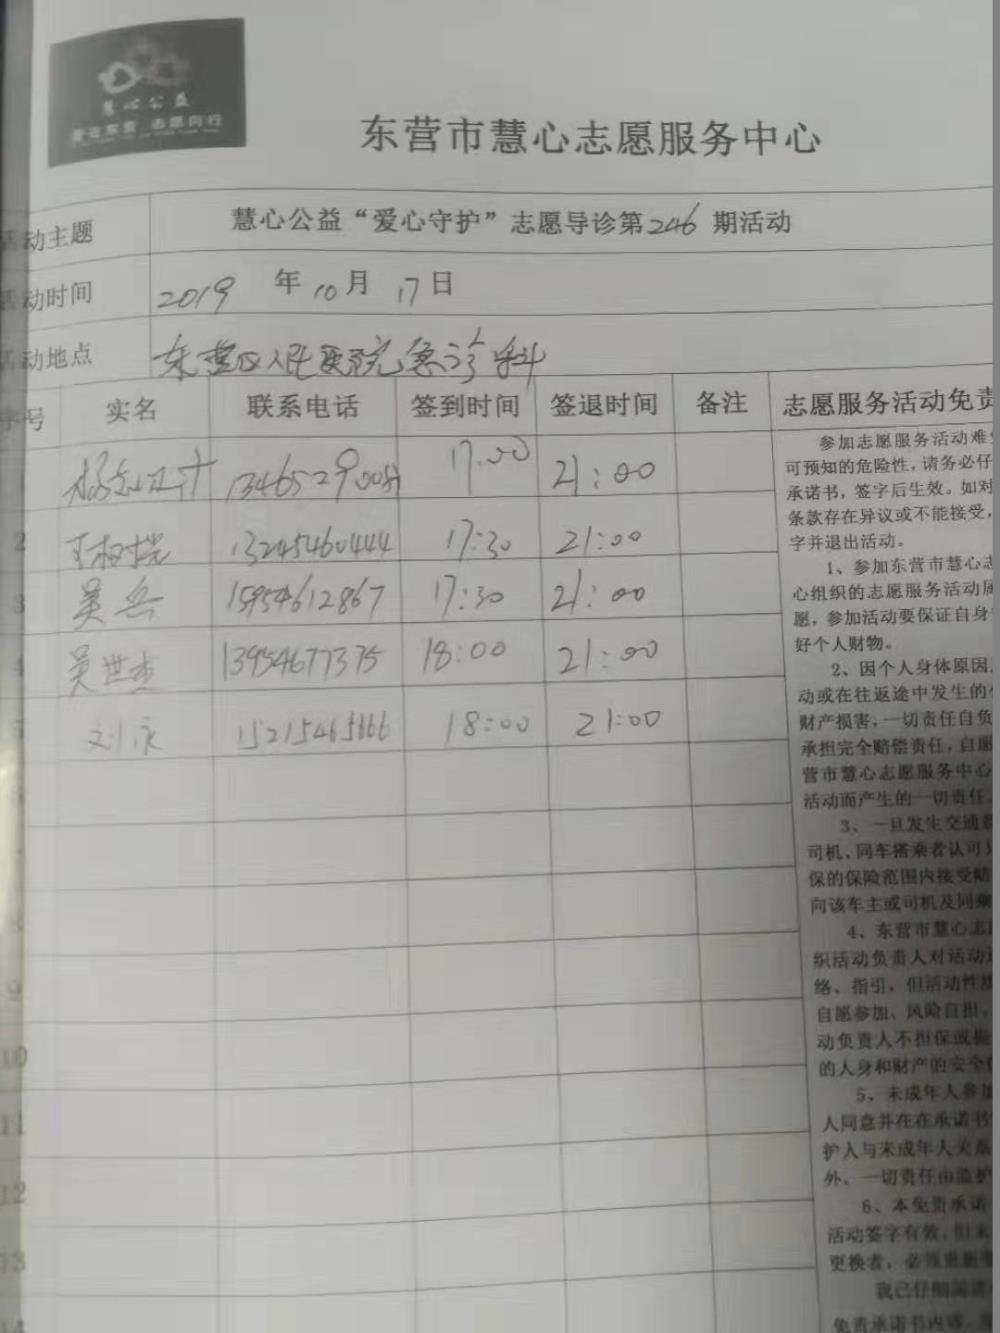 慧心公益
爱在东营 志愿同行
东营市慧心志愿服务中心
活动主题 慧心公益“爱心守护”志愿导诊第246期活动
活动时间 2019年10月17日
活动地点 东营区人民医院急诊科
序号 实名 联系电话 签到时间 签退时间 备注 志愿服务活动免责
17:00 21:00
2 13245460444 17:30 21:00
3 吴兵 15954612867 17:30 21:00
4 吴世杰 13954677375 18:00 21:00
5 刘永 18:00 21:00
6
7
8
9
10
11
12
13
14
参加志愿服务活动难免
可预知的危险性，请务必仔
承诺书，签字后生效。如对
条款存在异议或不能接受，
字并退出活动。
1、参加东营市慧心志
心组织的志愿服务活动属
愿，参加活动要保证自身
好个人财物。
2、因个人身体原因，
动或在往返途中发生的
财产损害，一切责任自负
承担完全赔偿责任，自愿
营市慧心志愿服务中心
活动而产生的一切责任。
3、一旦发生交通
司机、同车搭乘者认可
保的保险范围内接受赔
向该车主或司机及同乘
4、东营市慧心志愿
织活动负责人对活动
络、指引，但活动性质
自愿参加、风险自担，
动负责人不担保或
的人身和财产的安全
5、未成年人参加
人同意并在在承诺书
护人与未成年人关系
外，一切责任由监护
6、本免责承诺
活动签字有效，但
更换者，必须重新
我已仔细阅读
免责承诺书内容，